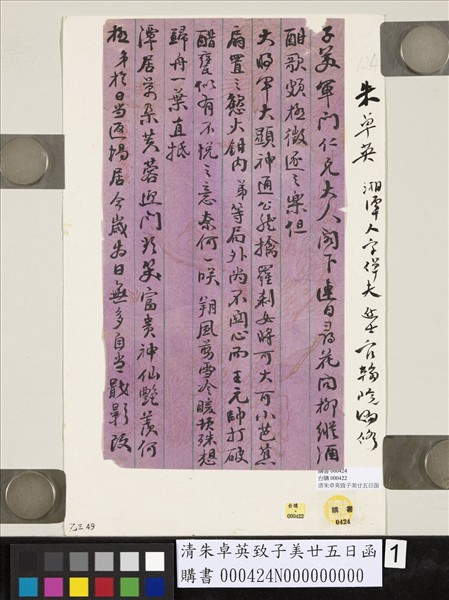 朱卓英 湘潭人字俾夫進士官翰院編修
子美軍門仁兄大人閣下連日尋花問柳縱酒
酣歌頗極徵逐之樂但
大將軍大顯神通公然擒羅剎女時可大可小芭蕉
扇置之慾火鉗內弟等局外尚不關心而王元帥打破
醋甕似有不悅之意奈何一咲朔風翦雪冷暖頃殊想
歸舟一葉直抵
潭居萬朵芙蓉迎門致笑富貴神仙艷羨何
極弟於日當返塲居今歲為日無多自當戢影設
購書 000424
台購 000422
清朱卓英致子美廿五日函
台購
000422
購書
0424
乙三49
清朱卓英致子美廿五日函
購書 000424N000000000
1